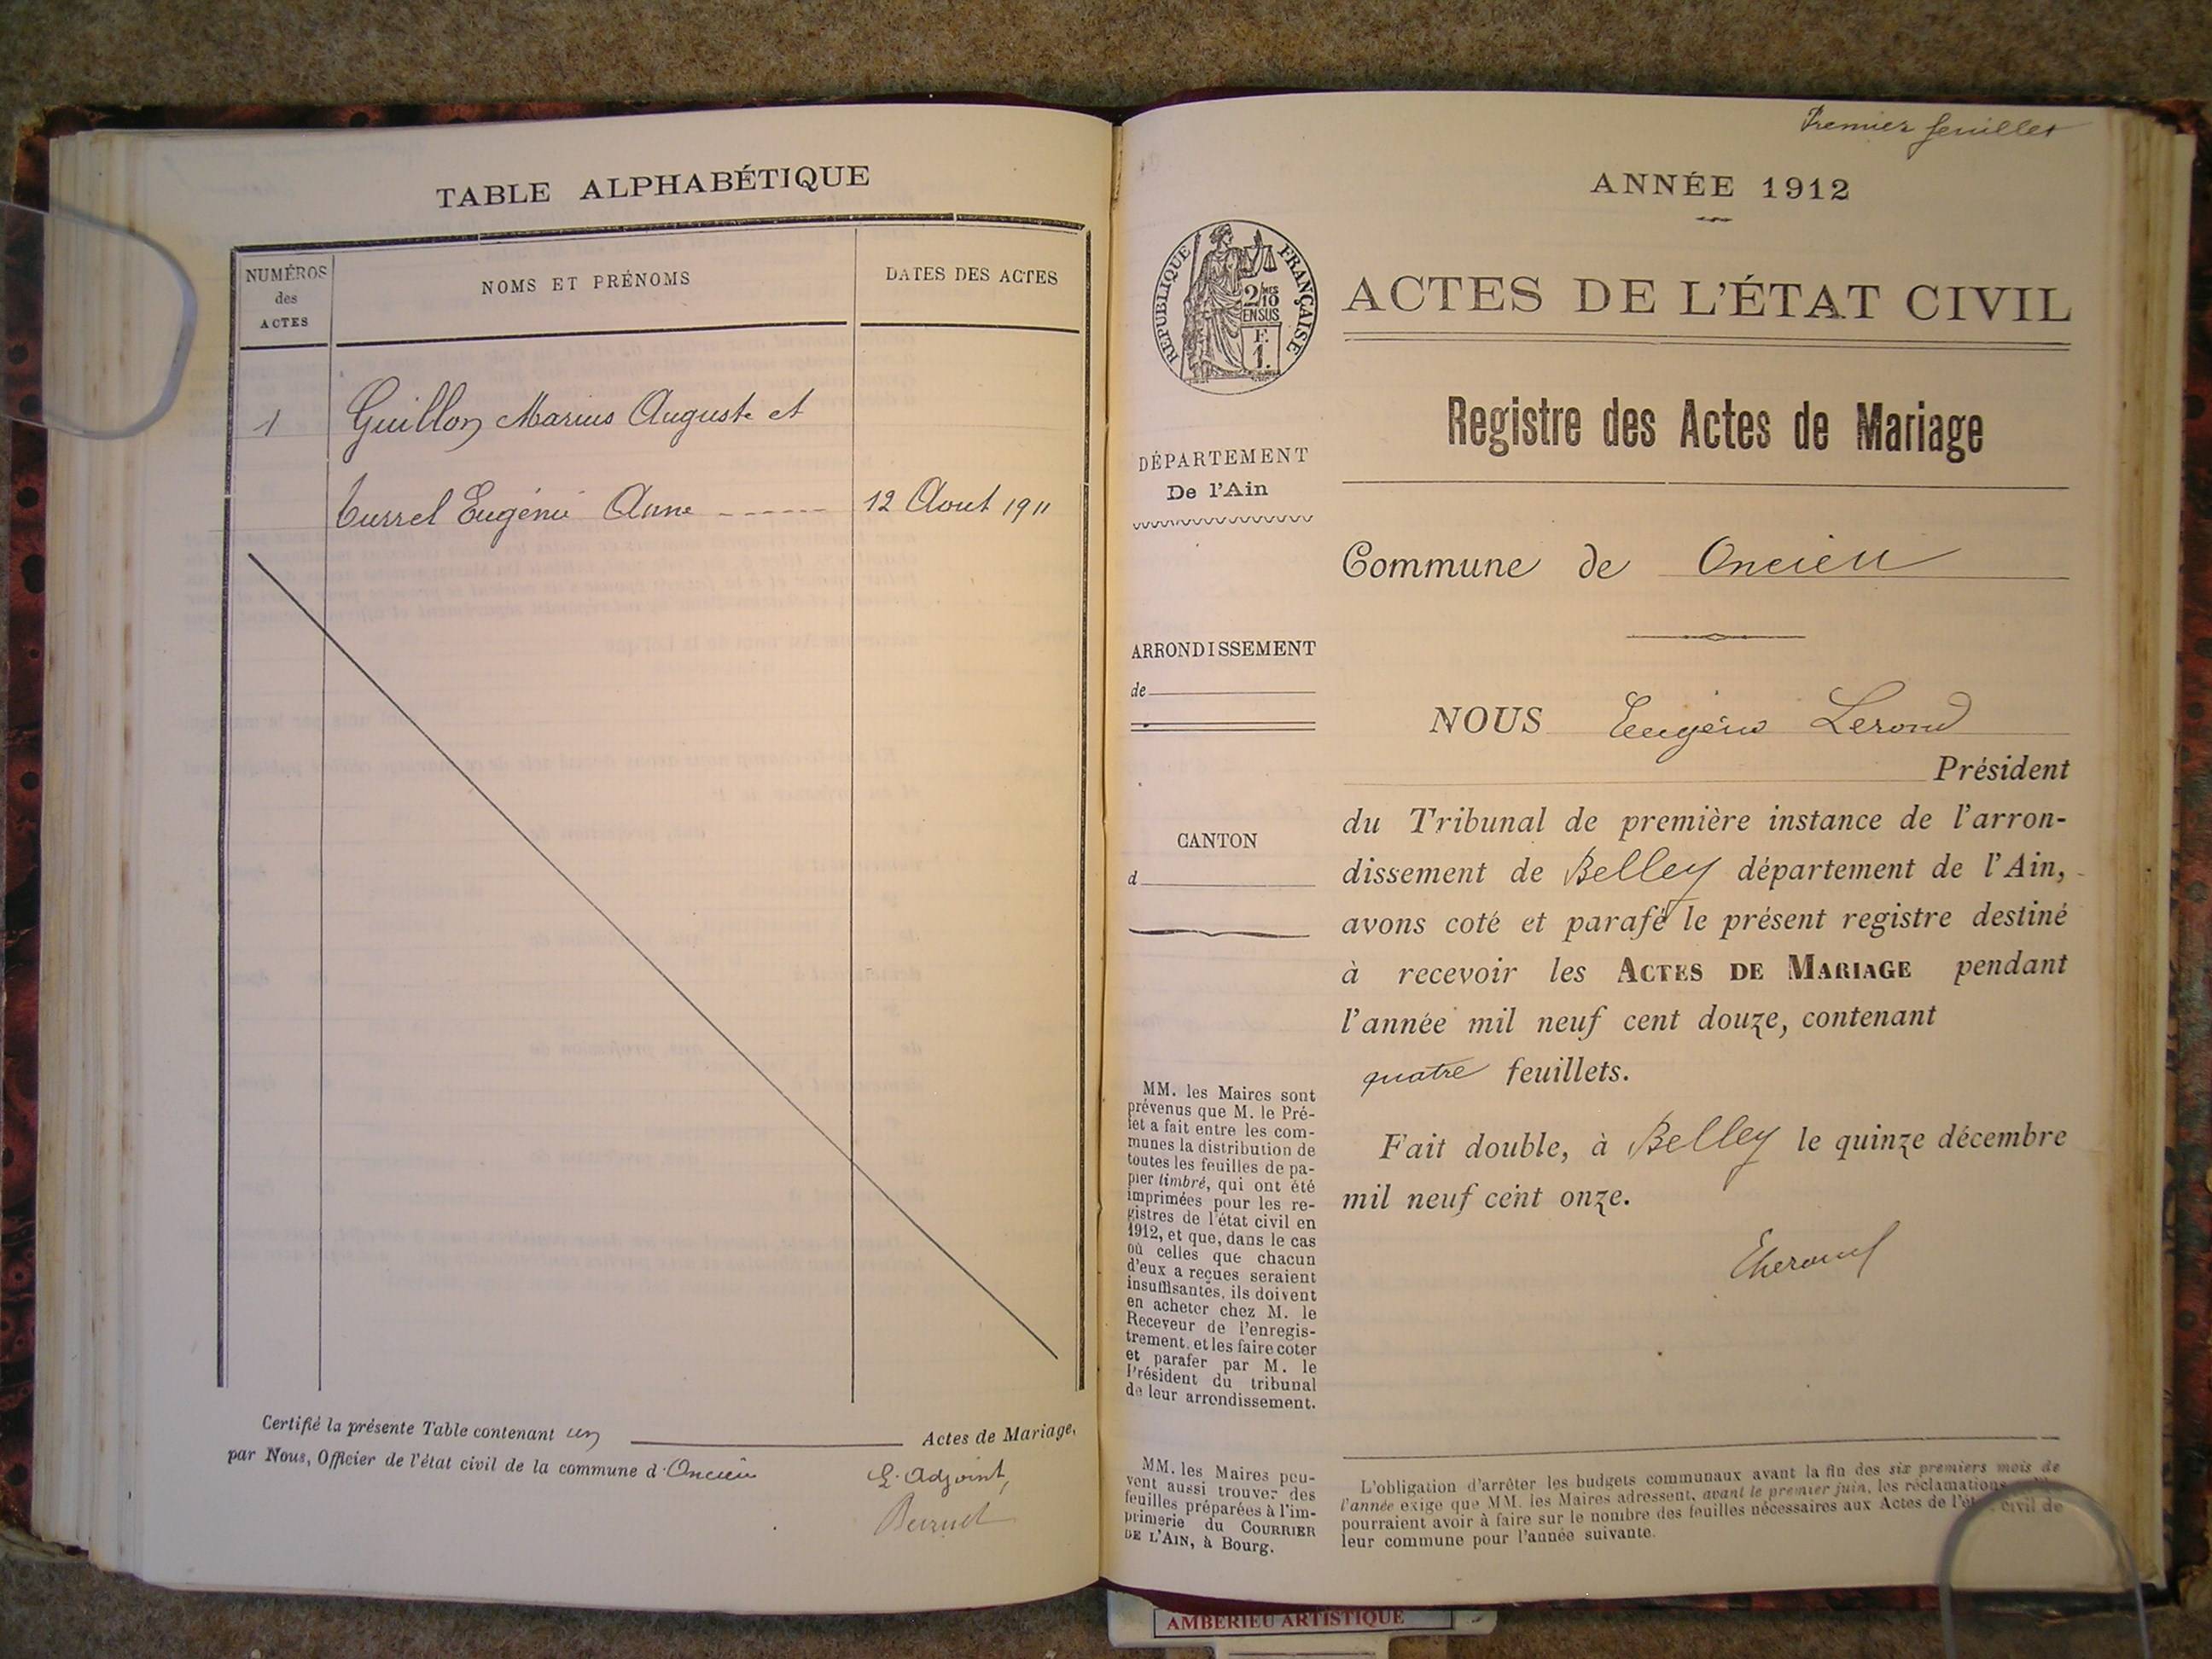 TABLE ALPHABÉTIQUE
NUMÉROS
des
ACTES
NOMS ET PRÉNOMS
DATES DES ACTES
1
Guillon Marius Auguste et
Turrel Eugénie Anne ------
12 Aout 1911
Certifié la présente Table contenant un
Actes de Mariage,
par Nous, Officier de l'état civil de la commune d'Oncieu
L'adjoint,
Premier feuillet
ANNÉE 1912
RÉPUBLIQUE FRANÇAISE
2/10
EN SUS
F.
1.
ACTES DE L'ÉTAT CIVIL
Registre des Actes de Mariage
DÉPARTEMENT
De l'Ain
Commune de Oncieu
ARRONDISSEMENT
de
CANTON
d
NOUS Eugène Lerond
Président
du Tribunal de première instance de l'arron-
dissement de Belley département de l'Ain,
avons coté et parafé le présent registre destiné
à recevoir les ACTES DE MARIAGE pendant
l'année mil neuf cent douze, contenant
quatre feuillets.
Fait double, à Belley le quinze décembre
mil neuf cent onze.
ELerond
MM. les Maires sont
prévenus que M. le Pré-
fet a fait entre les com-
munes la distribution de
toutes les feuilles de pa-
pier timbré, qui ont été
imprimées pour les re-
gistres de l'état civil en
1912, et que, dans le cas
où celles que chacun
d'eux a reçues seraient
insuffisantes, ils doivent
en acheter chez M. le
Receveur de l'enregis-
trement, et les faire coter
et parafer par M. le
Président du tribunal
de leur arrondissement.
MM. les Maires peu-
vent aussi trouver des
feuilles préparées à l'im-
primerie du COURRIER
DE L'AIN, à Bourg.
L'obligation d'arrêter les budgets communaux avant la fin des six premiers mois de
l'année exige que MM. les Maires adressent, avant le premier juin, les réclamations
pourraient avoir à faire sur le nombre des feuilles nécessaires aux Actes de l'état civil de
leur commune pour l'année suivante.
AMBERIEU ARTISTIQUE